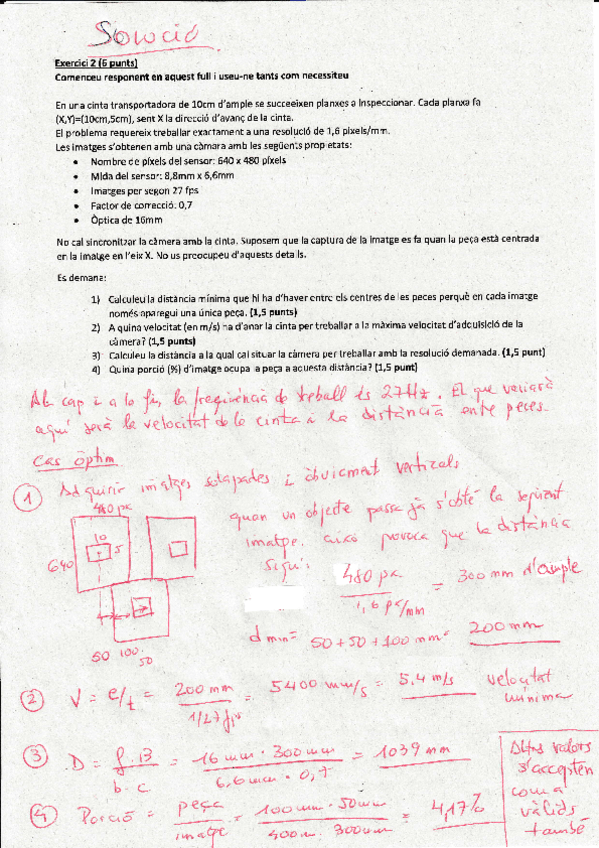 Solució
Exercici 2 (6 punts)
Comenceu responent en aquest full i useu-ne tants com necessiteu
En una cinta transportadora de 10cm d'ample se succeeixen planxes a inspeccionar. Cada planxa fa
(X,Y)=(10cm,5cm), sent X la direcció d'avanç de la cinta.
El problema requereix treballar exactament a una resolució de 1,6 pixels/mm.
Les imatges s'obtenen amb una càmara amb les següents propietats:
• Nombre de píxels del sensor: 640 x 480 píxels
• Mida del sensor: 8,8mm x 6,6mm
• Imatges per segon 27 fps
• Factor de correcció: 0,7
• Òptica de 16mm
No cal sincronitzar la càmera amb la cinta. Suposem que la captura de la imatge es fa quan la peça està centrada
en la imatge en l'eix X. No us preocupeu d'aquests detalls.
Es demana:
1) Calculeu la distància mínima que hi ha d'haver entre els centres de les peces perquè en cada imatge
només aparegui una única peça. (1,5 punts)
2) A quina velocitat (en m/s) ha d'anar la cinta per treballar a la màxima velocitat d'adquisició de la
càmera? (1,5 punts)
3) Calculeu la distància a la qual cal situar la càmera per treballar amb la resolució demanada. (1,5 punt)
4) Quina porció (%) d'imatge ocupa la peça a aquesta distància? (1,5 punt)
Al cap i a la fi, la freqüència de treball és 27Hz. El que variarà
aquí serà la velocitat de la cinta i la distància entre peces.
Cas òptim
1 Adquirir imatges solapades i òbviament verticals
480 px
quan un objecte passa ja s'obté la següent
imatge. això provoca que la distància
sigui:
640
10
5
480 px / 1,6 px/mm = 300 mm d'ample
d min = 50 + 50 + 100 mm = 200 mm
50 100 50
2 V = e/t = 200 mm / 1/27 fps = 5400 mm/s = 5,4 m/s velocitat
mínima
3 D = f·B / b·c = 16 mm · 300 mm / 6,6 mm · 0,7 = 1039 mm
4 Porció = peça / imatge = 100 mm · 50 mm / 400 m · 300 mm = 4,17%
Altres valors
s'accepten
com a
vàlids
també